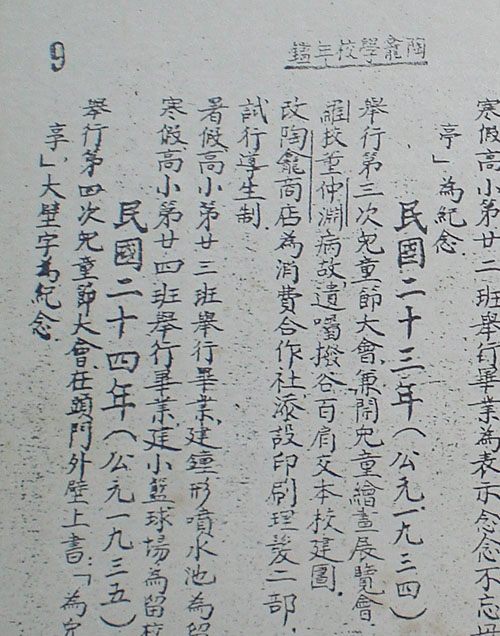 陶龕學校三鐘
9
寒假高小第廿二班舉行畢業為表示念念不忘母
亭」為紀念.
民國二十三年(公元一九三四)
舉行第三次兒童節大會,兼開兒童繪畫展覽會
校董仲淵病故,遺囑撥谷百肩交本校建圖.
改陶龕商店為消費合作社,添設印刷理髮二部,
試行導生制.
暑假高小第廿三班舉行畢業,建鐘形噴水池為留
寒假高小第廿四班舉行畢業,建小籃球場為留校
民國二十四年(公元一九三五)
舉行第四次兒童節大會,在頭門外壁上書:「為
享,」大壁字為紀念.